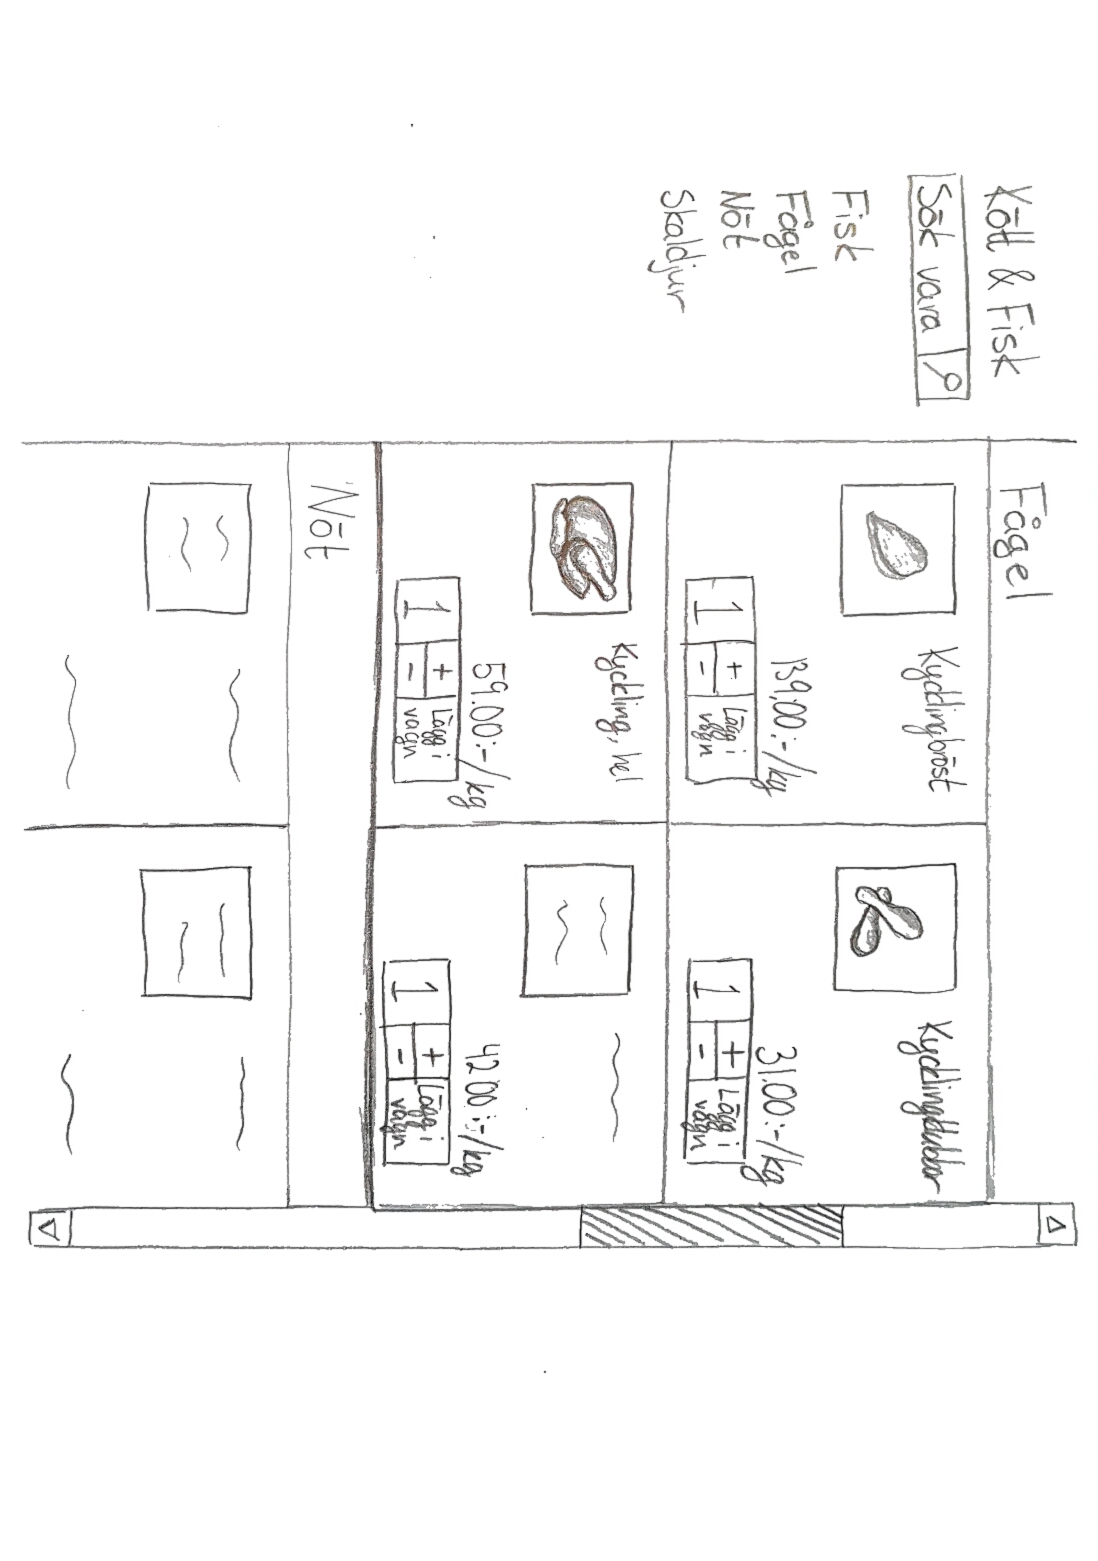 Kött & Fisk
Sök vara
Fisk
Fågel
Nöt
Skaldjur
Fågel
Kycklingbröst
139,00:-/kg
1
+
-
Lägg i
vagn
Kycklingklubbor
31,00:-/kg
1
+
-
Lägg i
vagn
Kyckling, hel
59.00:-/kg
1
+
-
Lägg i
vagn
42.00:-/kg
1
+
-
Lägg i
vagn
Nöt